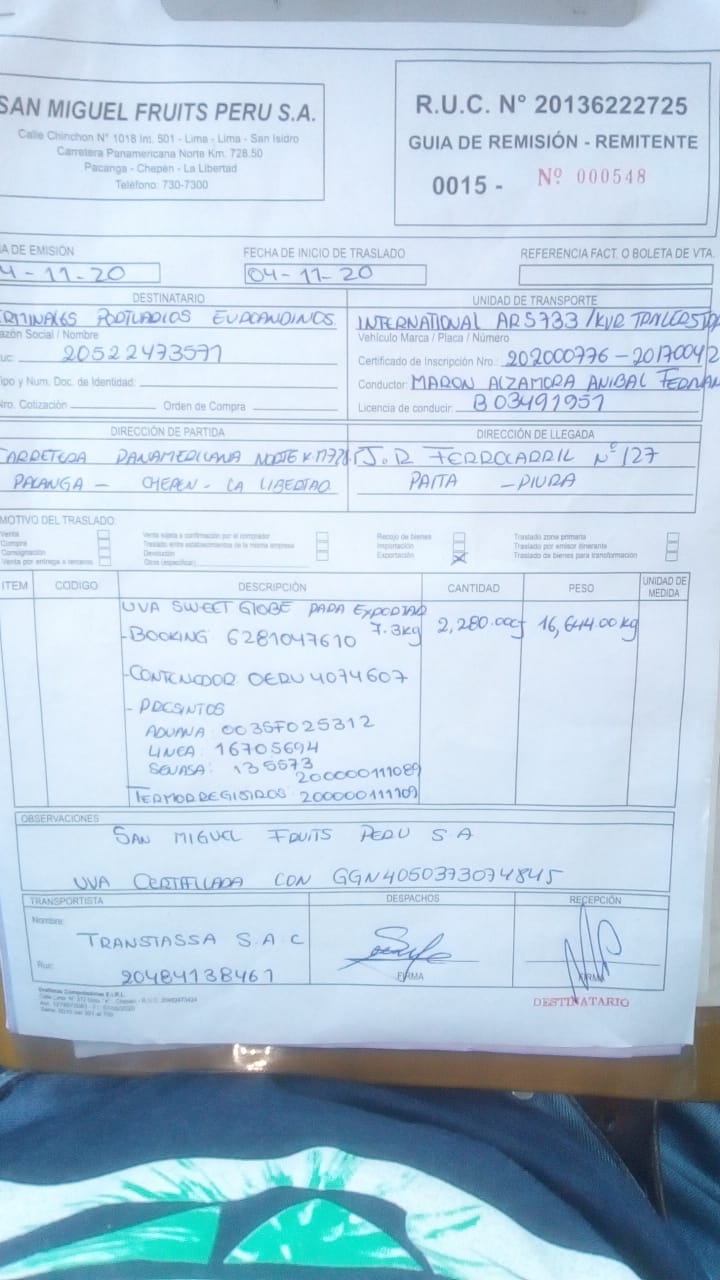 SAN MIGUEL FRUITS PERU S.A.
Calle Chinchon N° 1018 Int. 501 - Lima - Lima - San Isidro
Carretera Panamericana Norte Km. 728.50
Pacanga - Chepén - La Libertad
Teléfono: 730-7300
R.U.C. N° 20136222725
GUIA DE REMISIÓN - REMITENTE
0015 - Nº 000548
A DE EMISIÓN
4-11-20
FECHA DE INICIO DE TRASLADO
04-11-20
REFERENCIA FACT. O BOLETA DE VTA.
DESTINATARIO
ERMINALES PORTUARIOS EUROANDINOS
azón Social / Nombre
uc: 20522473571
ipo y Num. Doc. de Identidad:
Nro. Cotización: Orden de Compra
UNIDAD DE TRANSPORTE
INTERNATIONAL ARS733 /KVR
Vehículo Marca / Placa / Número
Certificado de Inscripción Nro.: 202000776-20170042
Conductor: MARON ALZAMORA ANIBAL FERNAN
Licencia de conducir: B03491951
DIRECCIÓN DE PARTIDA
CARRETERA PANAMERICANA NORTE
PACANGA - CHEPEN - LA LIBERTAD
DIRECCIÓN DE LLEGADA
J.R FERROCARRIL Nº 127
PAITA - PIURA
MOTIVO DEL TRASLADO:
Venta
Compra
Consignación
Venta por entrega a terceros
Venta sujeta a confirmación por el comprador
Traslado entre establecimientos de la misma empresa
Devolución
Otros (especificar)
Recojo de bienes
Importación
Exportación X
Traslado zona primaria
Traslado por emisor itinerante
Traslado de bienes para transformación
ITEM CODIGO DESCRIPCIÓN CANTIDAD PESO UNIDAD DE MEDIDA
UVA SWEET GLOBE PARA EXPORTAR
7.3kg 2,280.00cj 16,644.00kg
- BOOKING 6281047610
- CONTENEDOR OERU4074607
- PRECINTOS
ADUANA: 0035F025312
LINEA: 16705694
SENASA: 135573
200000111089
TERMORREGISTROS 200000111109
OBSERVACIONES
SAN MIGUEL FRUITS PERU S A
UVA CERTIFICADA CON GGN4050373074845
TRANSPORTISTA
Nombre:
TRANSTASSA S.A.C
Ruc:
20484138461
DESPACHOS
FIRMA
RECEPCIÓN
FIRMA
DESTINATARIO